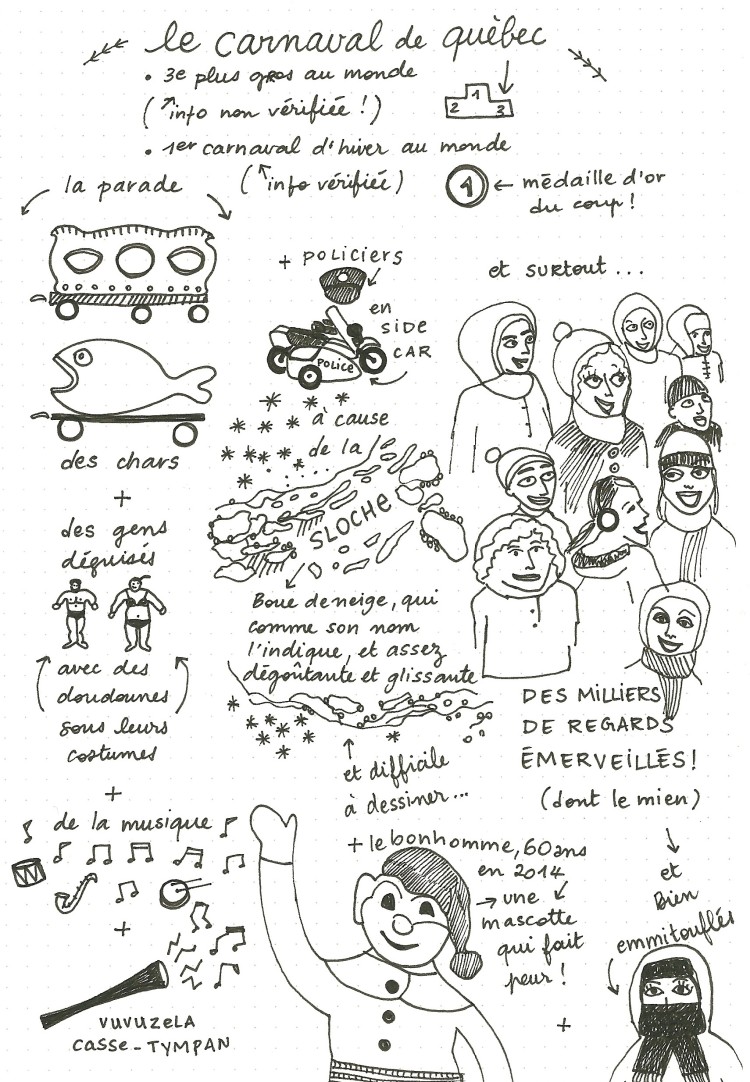 le carnaval de québec
• 3e plus gros au monde
(info non vérifiée !)
2 1 3
• 1er carnaval d'hiver au monde
(info vérifiée)
1 ← médaille d'or
du coup !
la parade
des chars
+
des gens
déguisés
avec des
doudounes
sous leurs
costumes
+
de la musique
+
VUVUZELA
CASSE-TYMPAN
+ POLICIERS
en
SIDE
CAR
POLICE
à cause
de la
SLOCHE
Boue de neige, qui
comme son nom
l'indique, et assez
dégoûtante et glissante
et difficile
à dessiner...
et surtout...
DES MILLIERS
DE REGARDS
ÉMERVEILLÉS!
(dont le mien)
et
Bien
emmitouflés
+ le bonhomme, 60 ans
en 2014
→ une
mascotte
qui fait
peur !
+